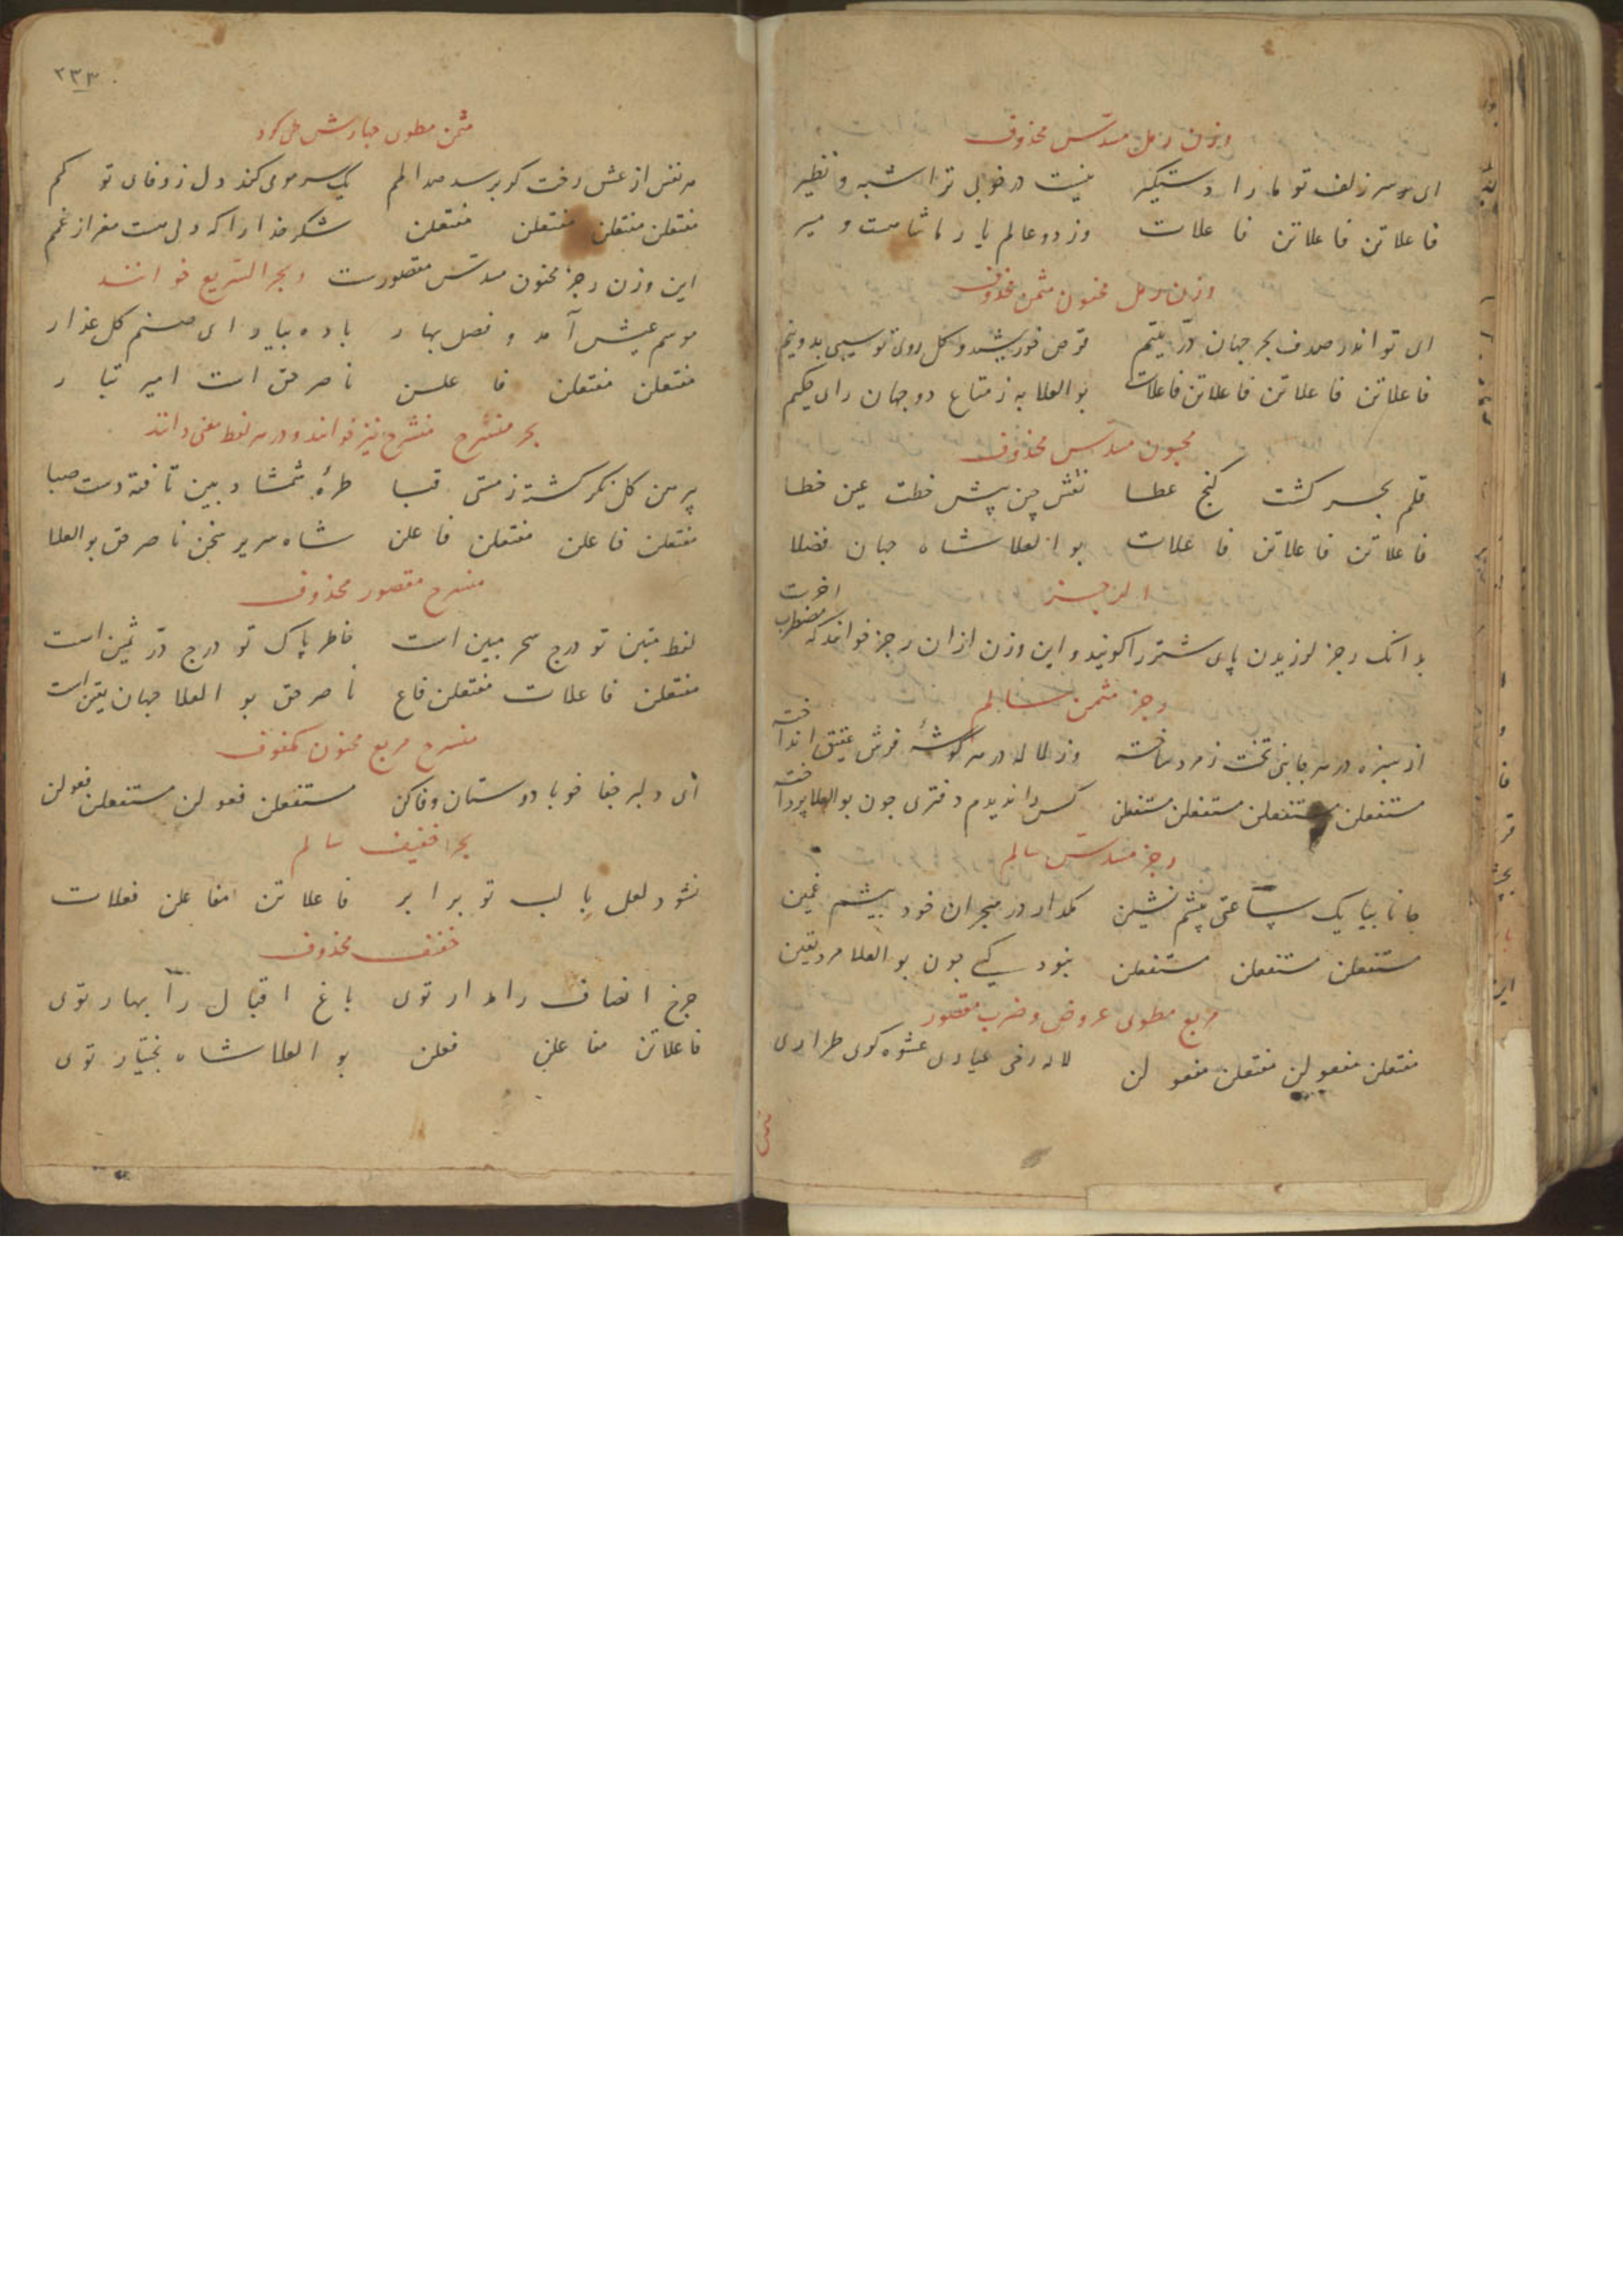 وزن رمل مسدّس محذوف
ای سر زلف تو ما را دستگیر نیست در خوبی ترا شبه و نظیر
فاعلاتن فاعلاتن فاعلات وز دو عالم
وزن رمل مخبون مثمن محذوف
ای تو اندر صدف بحر جهان درّ یتیم قرص خورشید و کل روی تو سیبی بدونیم
فاعلاتن فاعلاتن فاعلاتن فاعلات بوالعلا به ز متاع دو جهان رای حکیم
مخبون مسدّس محذوف
قلم بحر کشت کنج عطا نقش چین پیش خطت عین خطا
فاعلاتن فاعلاتن فاعلات بوالعلا شاه جهان فضلا
الرجز
بدانک رجز لرزیدن پای شتر را کویند و این وزن از ان رجز خوانند که مضطرب اخرست
رجز مثمن سالم
از سبزه در هر جانبی تخت زمرد ساخته وز لاله در هر کوشهٔ فرش عقیق انداخته
مستفعلن مستفعلن مستفعلن مستفعلن کس را ندیدم دفتری چون بوالعلا پرداخته
رجز مسدّس سالم
جانا بیا یک ساعتی پیشم نشین مکذار در هجران خود پیشم غمین
مستفعلن مستفعلن مستفعلن نبود کسی چون بوالعلا مرد یقین
مربع مطوی عروض و ضرب مقصور
مفتعلن مفعولن مفتعلن مفعولن لاله رخی عیاری عشوه کری طراری
مثمن
۲۳۳
مثمن مطوی
هر نفس از عشق رخت کر برسد صد المم یک سر موی کند دل ز وفای تو کم
مفتعلن مفتعلن مفتعلن مفتعلن شکر خدا را که دلی هست مفر از غمم
این وزن رجز مخبون مسدّس مقصورست و بحر السّریع خوانند
موسم عیش آمد و فصل بهار باده بیار ای صنم کل عذار
مفتعلن مفتعلن فاعلن ناصر حق است امیر تبار
بحر منسرح منشرح نیز خوانند و در هر لفظ معنی دانند
پیرهن کل نکر کشته ز مستی قبا طرهٔ شمشاد بین تافته دست صبا
مفتعلن فاعلن مفتعلن فاعلن شاه سریر سخن ناصر حق بوالعلا
منسرح مقصور محذوف
لفظ متین تو درج سحر مبین است خاطر پاک تو درج درّ ثمین است
مفتعلن فاعلات مفتعلن فاع ناصر حق بوالعلا جهان یقین است
منسرح مربع مخبون مکفوف
ای دلبر جفا خو با دوستان وفا کن مستفعلن فعولن مستفعلن فعولن
بحر خفیف سالم
نشود لعل با لب تو برابر فاعلاتن مفاعلن فعلات
خفیف محذوف
چرخ انصاف را مدار توی باغ اقبال را بهار توی
فاعلاتن مفاعلن فعلن بوالعلا شاه بختیار توی